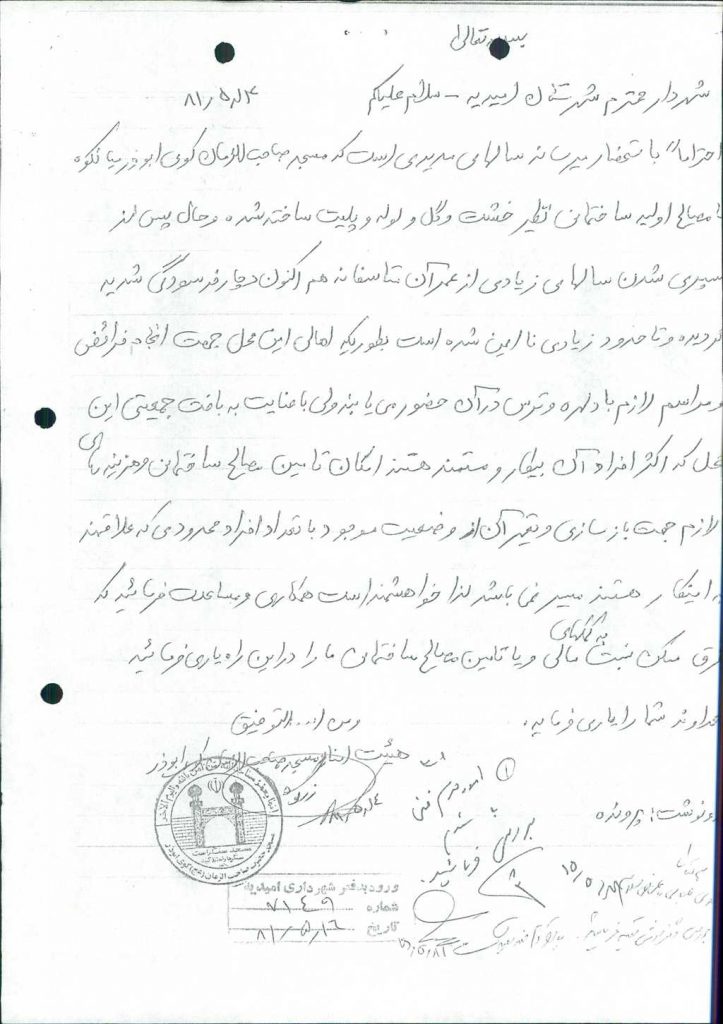 بسمه تعالی
شهردار محترم شهرستان امیدیه - سلام علیکم
۸۱/۵/۴
احتراما" باستحضار میرساند سالهای مدیدی است که مسجد صاحب الزمان کوی ابوذر میانکوه
با مصالح اولیه ساختمانی نظیر خشت و گل و لوله و پلیت ساخته شده و حال پس از
سپری شدن سالهای زیادی از عمر آن متاسفانه هم اکنون دچار فرسودگی شدید
گردیده و تا حدود زیادی ناامن شده است بطوریکه اهالی این محل جهت انجام فرائض
و مراسم لازم با دلهره و ترس در آن حضور می یابند ولی با عنایت به بافت جمعیتی این
محل که اکثر افراد آن بیکار و مستمند هستند امکان تامین مصالح ساختمانی و هزینه های
لازم جهت بازسازی و تعمیر آن از وضعیت موجود با تعداد افراد محدودی که علاقمند
به اینکار هستند میسر نمی باشد لذا خواهشمند است همکاری و مساعدت فرمائید که
طرق ممکن نسبت به کمکهای مالی و یا تامین مصالح ساختمانی ما را در این راه یاری فرمائید
خداوند شما را یاری فرماید.
ومن ا... التوفیق
هیئت امنای مسجد صاحب الزمان کوی ابوذر
رونوشت: پرونده
۱ امور فنی
بررسی
فرمائید.
۱۵/۵
ورود بدفتر شهرداری امیدیه
شماره ۷۱۴۹
تاریخ ۸۱/۵/۱۶